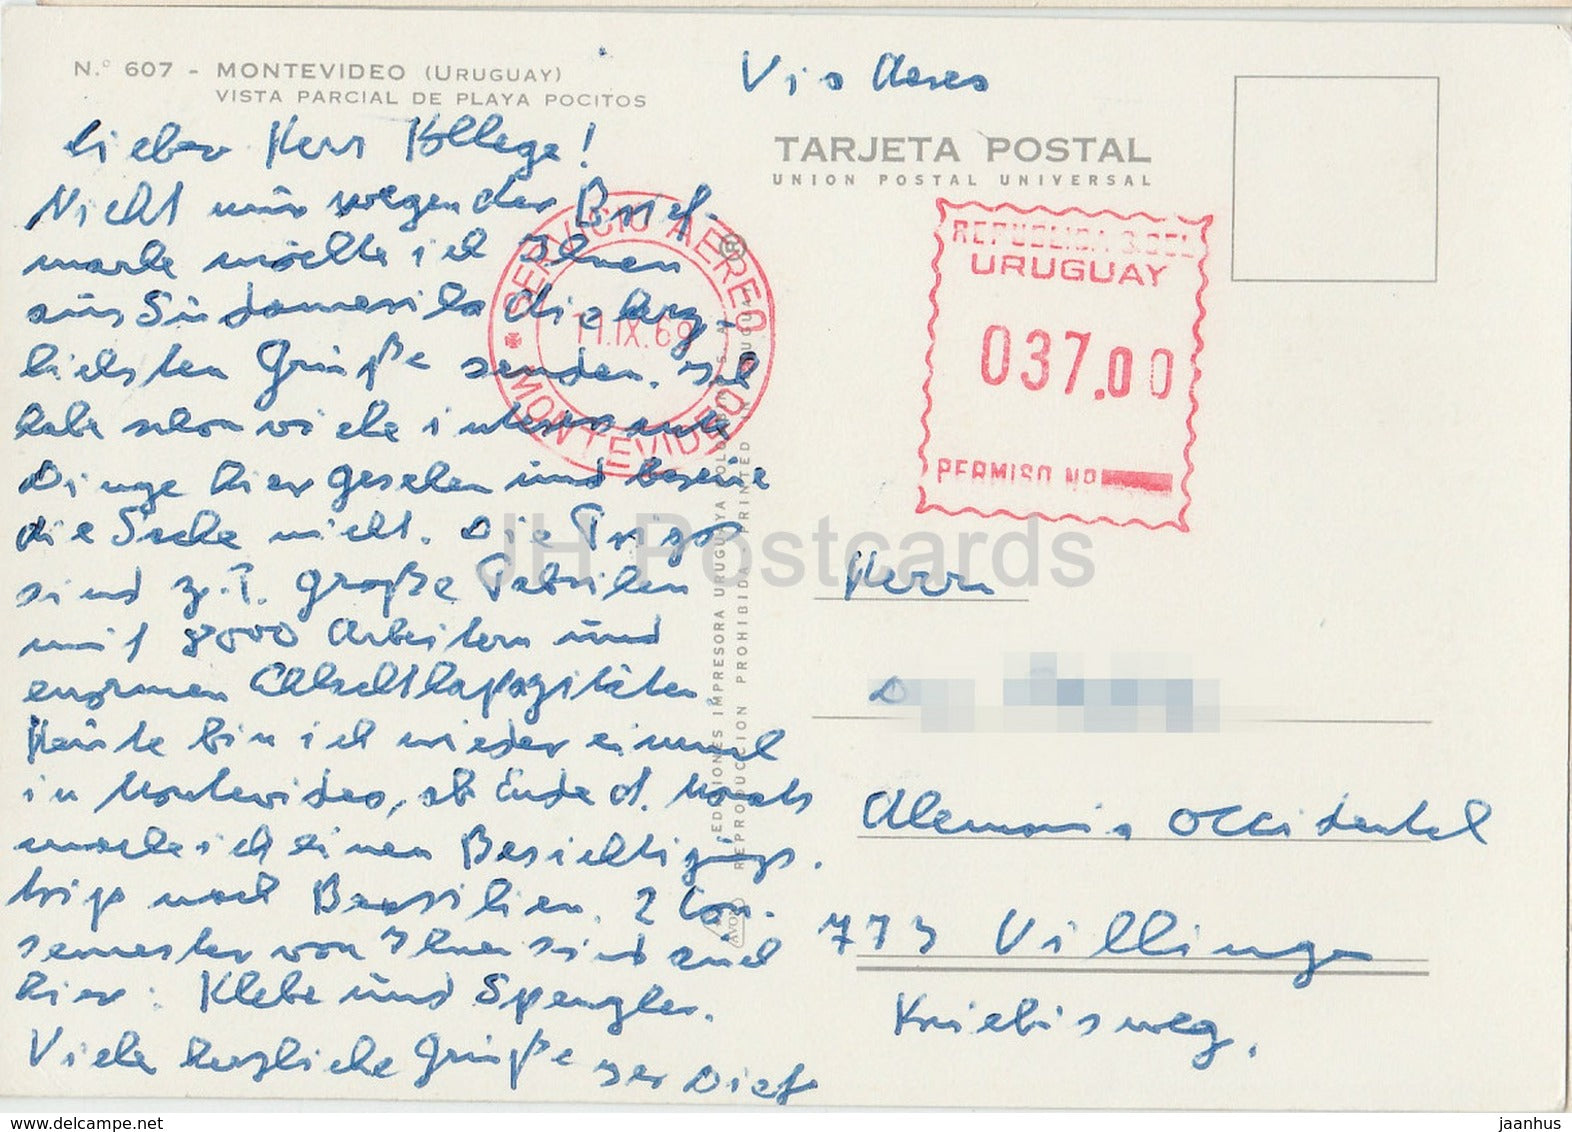 N.º 607 - MONTEVIDEO (URUGUAY)
VISTA PARCIAL DE PLAYA POCITOS
Via Aerea
TARJETA POSTAL
UNION POSTAL UNIVERSAL
Lieber Herr Kollege!
Nicht nur wegen der Brief-
marke möchte ich Ihnen
aus Südamerika die herz-
lichsten Grüße senden. Ich
habe schon viele interessante
Dinge hier gesehen und bereue
die Sache nicht. Die Frigos
sind z.T. große Fabriken
mit 8000 Arbeitern und
enormen Schlachtkapazitäten
Heute bin ich wieder einmal
in Montevideo, ab Ende d. Monats
mache ich einen Besichtigungs-
trip nach Brasilien. 2 Con-
semester von Ihnen sind auch
hier: Klebe und Spengler.
Viele herzliche Grüße
SERVICIO AEREO
11.IX.69
MONTEVIDEO
REPUBLICA O. DEL
URUGUAY
037.00
PERMISO Nº
EDICIONES IMPRESORA URUGUAYA COLOMBINO S.A.
REPRODUCCION PROHIBIDA PRINTED IN URUGUAY
JH Postcards
Herrn
Alemania Occidental
773 Villingen
Kniebisweg.
www.delcampe.net
jaanhus